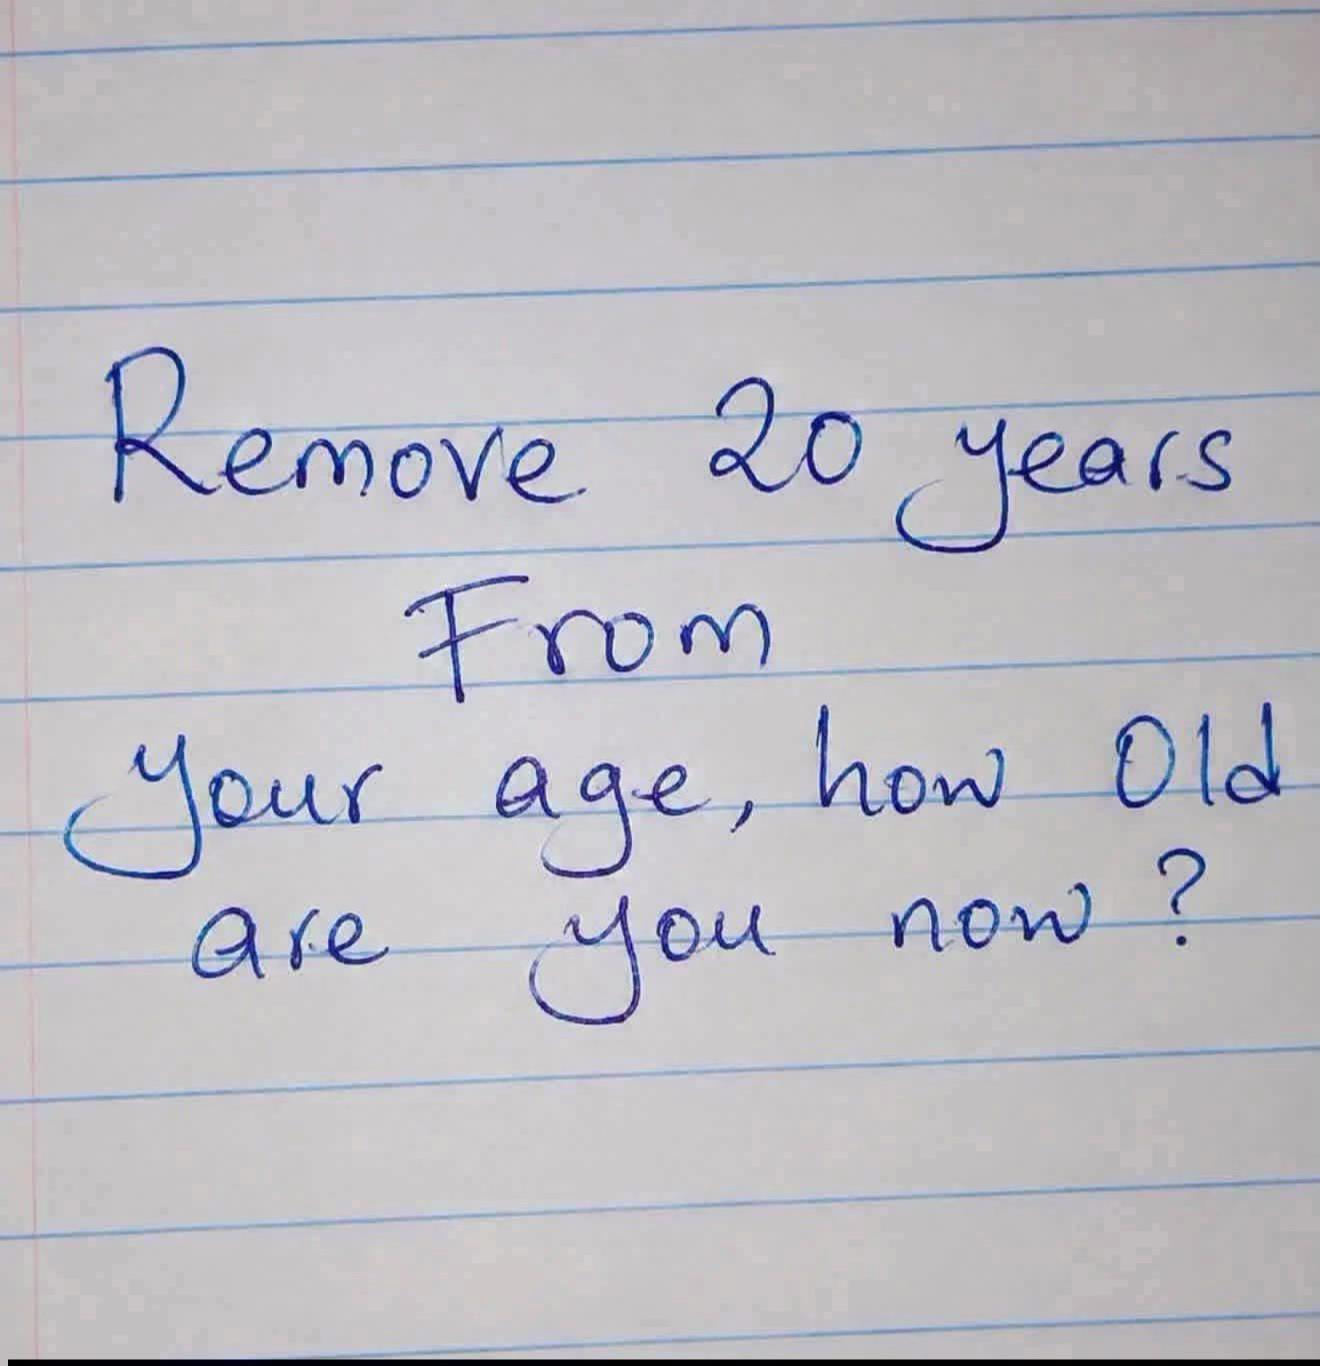 Remove 20 years
From
your age, how Old
are you now?